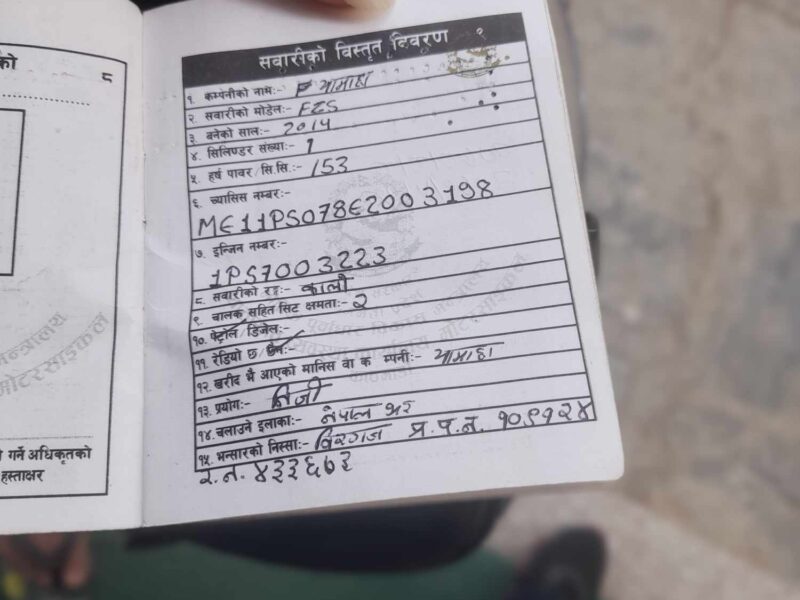 को
८
सवारीको विस्तृत विवरण
१. कम्पनीको नाम:- यामाहा
२. सवारीको मोडेल:- FZS
३. बनेको साल:- 2014
४. सिलिण्डर संख्या:- 1
५. हर्ष पावर/सि.सि.:- 153
६. च्यासिस नम्बर:-
ME11PS078E2003198
७. इन्जिन नम्बर:-
1PS7003223
८. सवारीको रङ्ग:- कालो
९. चालक सहित सिट क्षमता:- २
१०. पेट्रोल/डिजेल:-
११. रेडियो छ/छैन:-
१२. खरीद भै आएको मानिस वा क म्पनी:- यामाहा
१३. प्रयोग:- निजी
१४. चलाउने इलाका:- नेपाल भर
१५. भन्सारको निस्सा:- विरगंज प्र.प.न. १०९१२४
र.न. ४३३६७३
मोटरसाइकल
गर्ने अधिकृतको
हस्ताक्षर